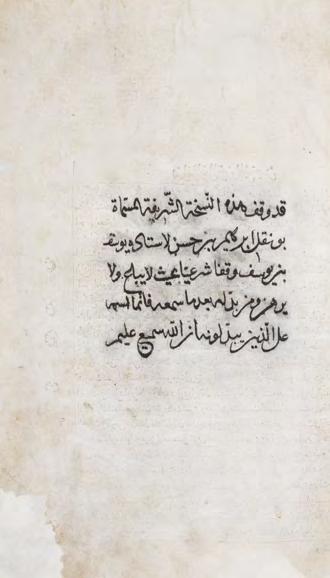 قد وقف هذه النّسخة الشّريفة المسمّاة
بو نقل ابرهيم بن حسن لاستاى ويوسف
بن يوسف وقفا شرعيّا بحيث لا يباع ولا
يرهن ومن بدّله بعد ما سمعه فانما اثمه
على الّذين يبدّلونه ان اللّه سميع عليم